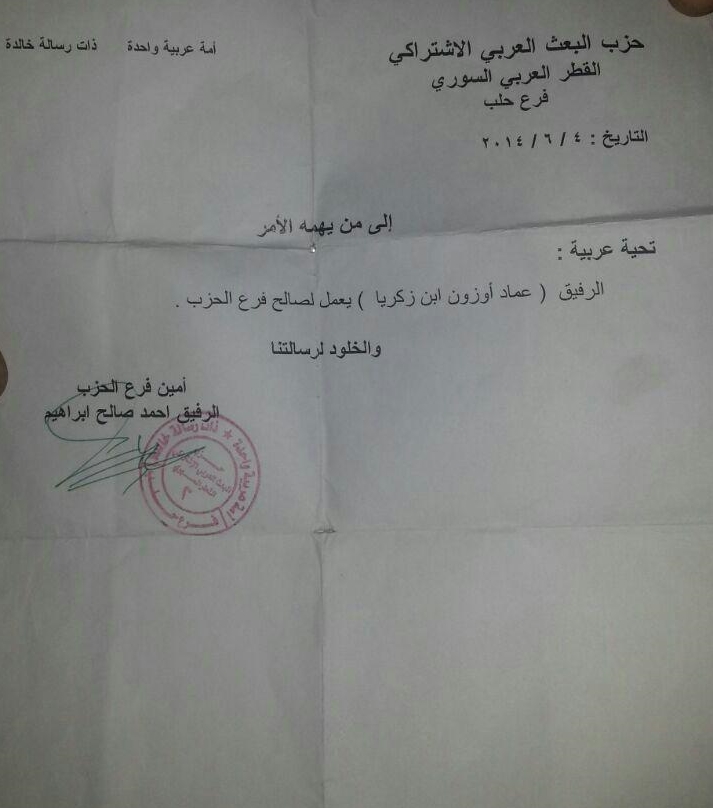 حزب البعث العربي الاشتراكي
القطر العربي السوري
فرع حلب
أمة عربية واحدة ذات رسالة خالدة
التاريخ : ٤ / ٦ / ٢٠١٤
إلى من يهمه الأمر
تحية عربية :
الرفيق ( عماد أوزون ابن زكريا ) يعمل لصالح فرع الحزب .
والخلود لرسالتنا
أمين فرع الحزب
الرفيق احمد صالح ابراهيم
أمة عربية واحدة ★ ذات رسالة
حزب
البعث العربي
القطر السوري
٢